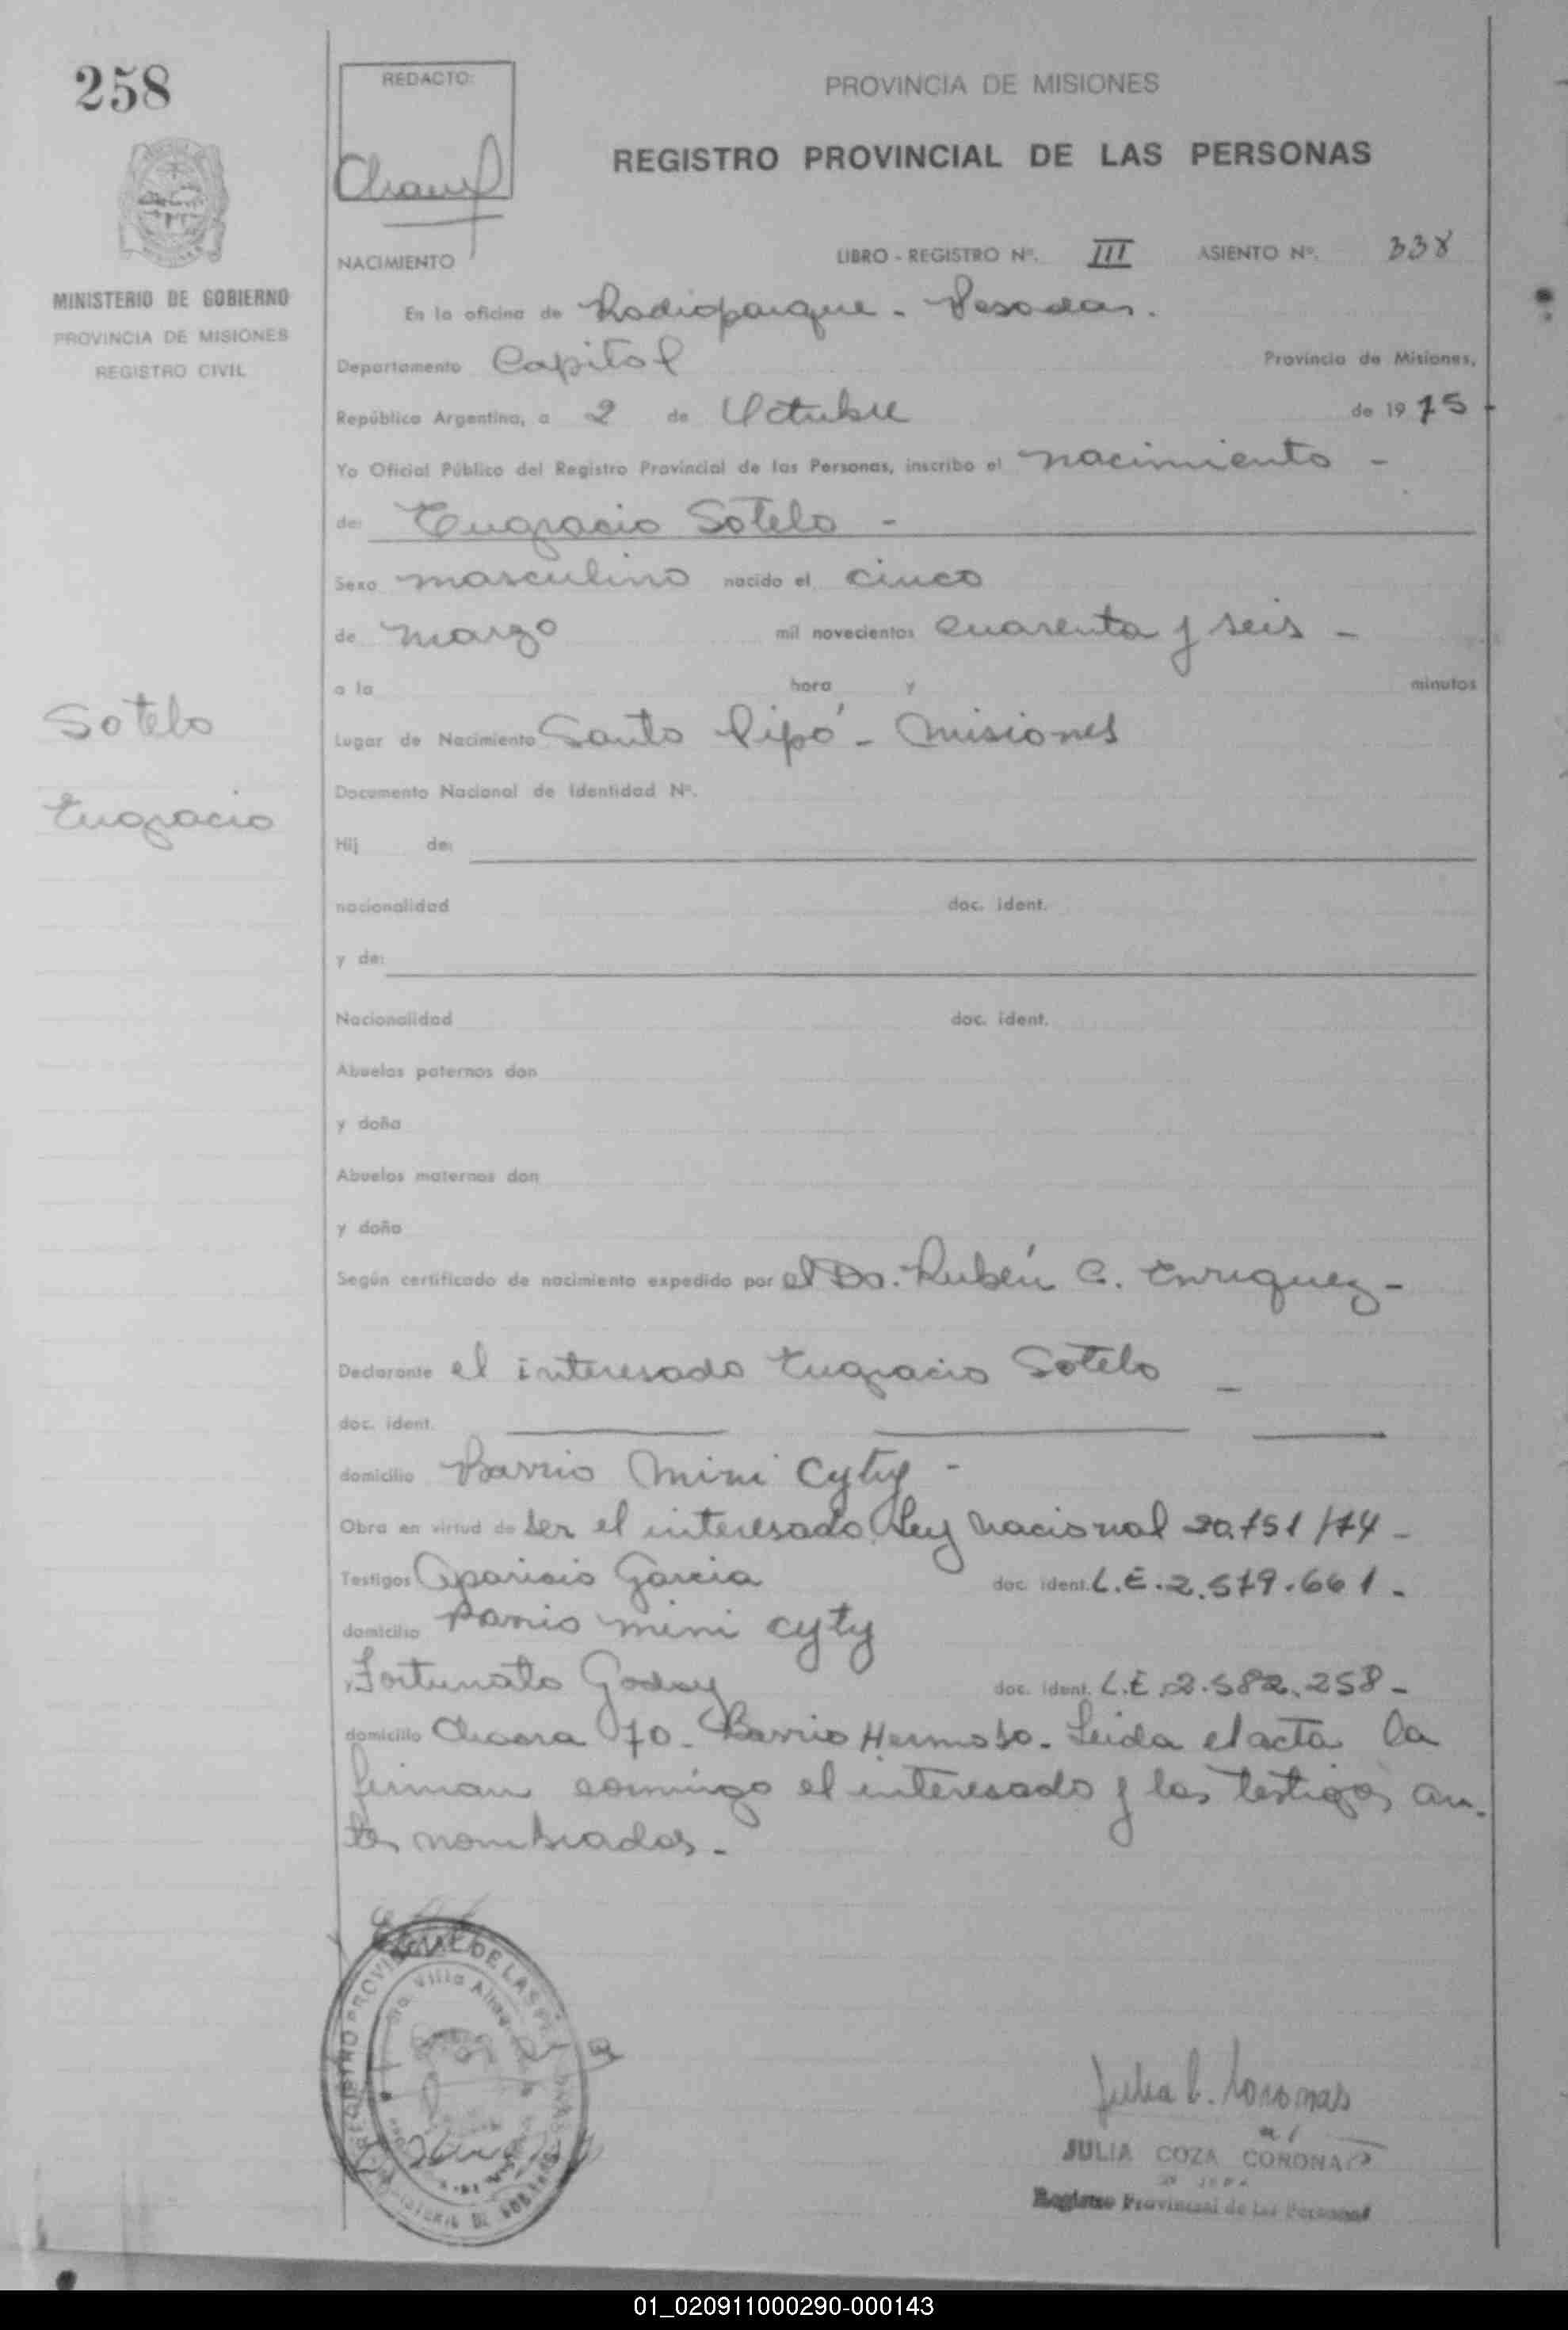 258
REDACTO:
PROVINCIA DE MISIONES
REGISTRO PROVINCIAL DE LAS PERSONAS
MINISTERIO DE GOBIERNO
PROVINCIA DE MISIONES
REGISTRO CIVIL
NACIMIENTO
LIBRO - REGISTRO Nº. III ASIENTO Nº. 338
En la oficina de Radioparque - Posadas.
Departamento Capital Provincia de Misiones,
República Argentina, a 2 de Octubre de 1975
Yo Oficial Público del Registro Provincial de las Personas, inscribo el nacimiento -
de: Eugracio Sotelo -
Sexo masculino nacido el cinco
de marzo mil novecientos cuarenta y seis -
a la hora y minutos
Sotelo
Eugracio
Lugar de Nacimiento Santo Pipó - Misiones
Documento Nacional de Identidad Nº.
Hij de:
nacionalidad doc. ident.
y de:
Nacionalidad doc. ident.
Abuelos paternos don
y doña
Abuelos maternos don
y doña
Según certificado de nacimiento expedido por el Dr. Rubén C. Enriquez -
Declarante el interesado Eugracio Sotelo -
doc. ident.
domicilio Barrio Mini Cyty -
Obra en virtud de ser el interesado Ley Nacional 20.751/74 -
Testigos Aparicio Garcia doc. ident. L.E. 2.579.661 -
domicilio Barrio mini cyty
Fortunato Godoy doc. ident. L.E. 2.582.258 -
domicilio Chacra 70 - Barrio Hermoso - Leida el acta la
firman conmigo el interesado y los testigos an-
tes nombrados -
REGISTRO PROVINCIAL DE LAS PERSONAS
Villa
MINISTERIO DE GOBIERNO
Julia C. Coronas
JULIA COZA CORONA
Registro Provincial de las Personas
01_020911000290-000143